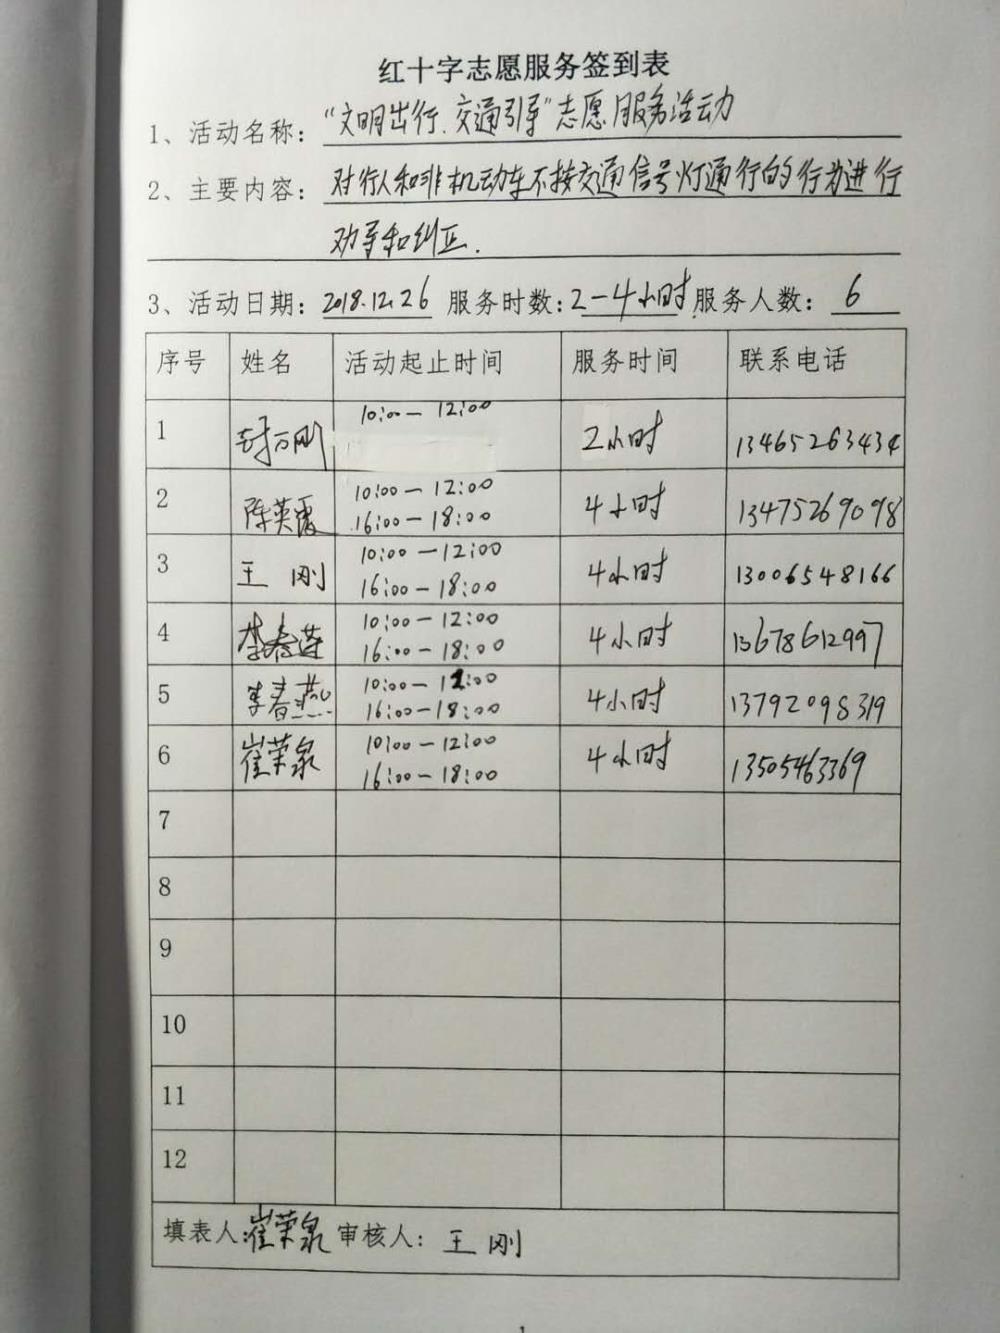 红十字志愿服务签到表
1、活动名称：“文明出行、交通引导”志愿服务活动
2、主要内容：对行人和非机动车不按交通信号灯通行的行为进行
劝导和纠正.
3、活动日期：2018.12.26 服务时数：2－4小时 服务人数：6
序号 姓名 活动起止时间 服务时间 联系电话
1 封万刚 10:00－12:00 2小时 13465263434
2 陈英霞 10:00－12:00 4小时 13475269098
16:00－18:00
3 王刚 10:00－12:00 4小时 13006548166
16:00－18:00
4 李春莲 10:00－12:00 4小时 13678612997
16:00－18:00
5 李春燕 10:00－12:00 4小时 13792098319
16:00－18:00
6 崔荣泉 10:00－12:00 4小时 13505463369
16:00－18:00
7
8
9
10
11
12
填表人：崔荣泉 审核人：王刚